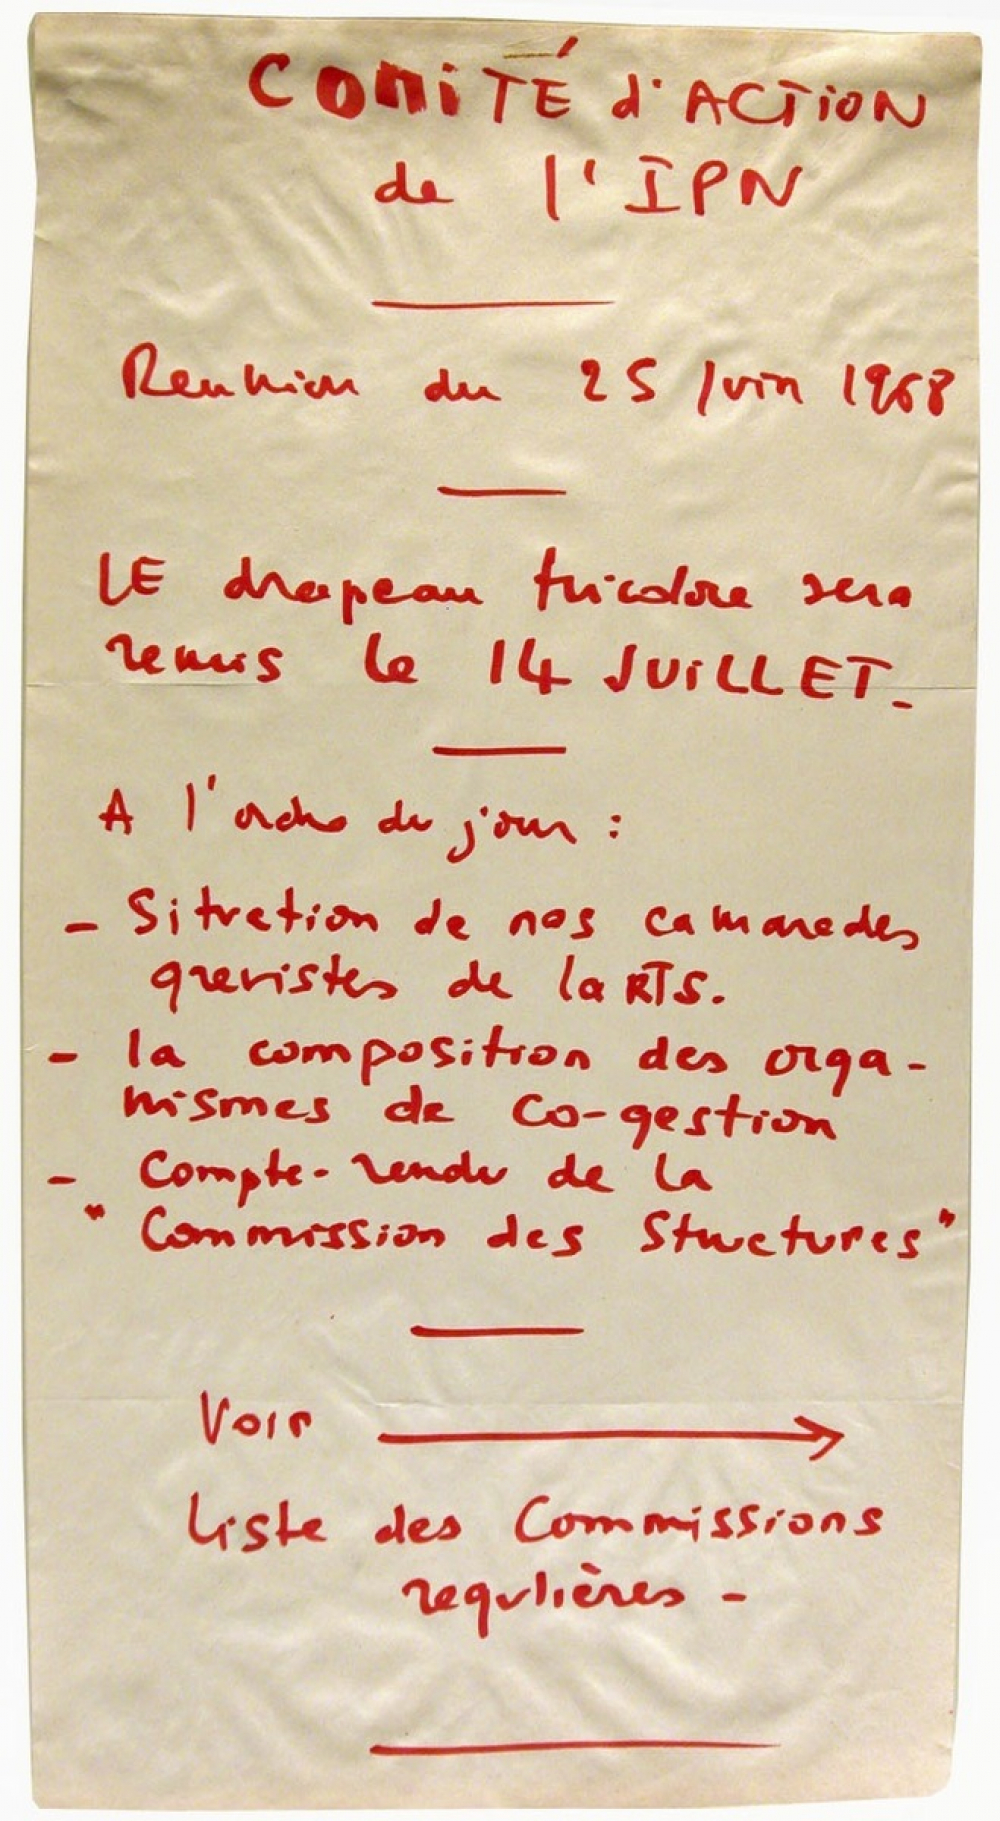 COMITÉ d'ACTION
de l'IPN
Reunion du 25 Juin 1968
LE drapeau tricolore sera
remis le 14 JUILLET.
A l'ordre du jour :
- Situation de nos camarades
grevistes de la RTS.
- la composition des orga-
nismes de co-gestion
- Compte-rendu de la
"Commission des Structures"
Voir →
Liste des Commissions
regulières -